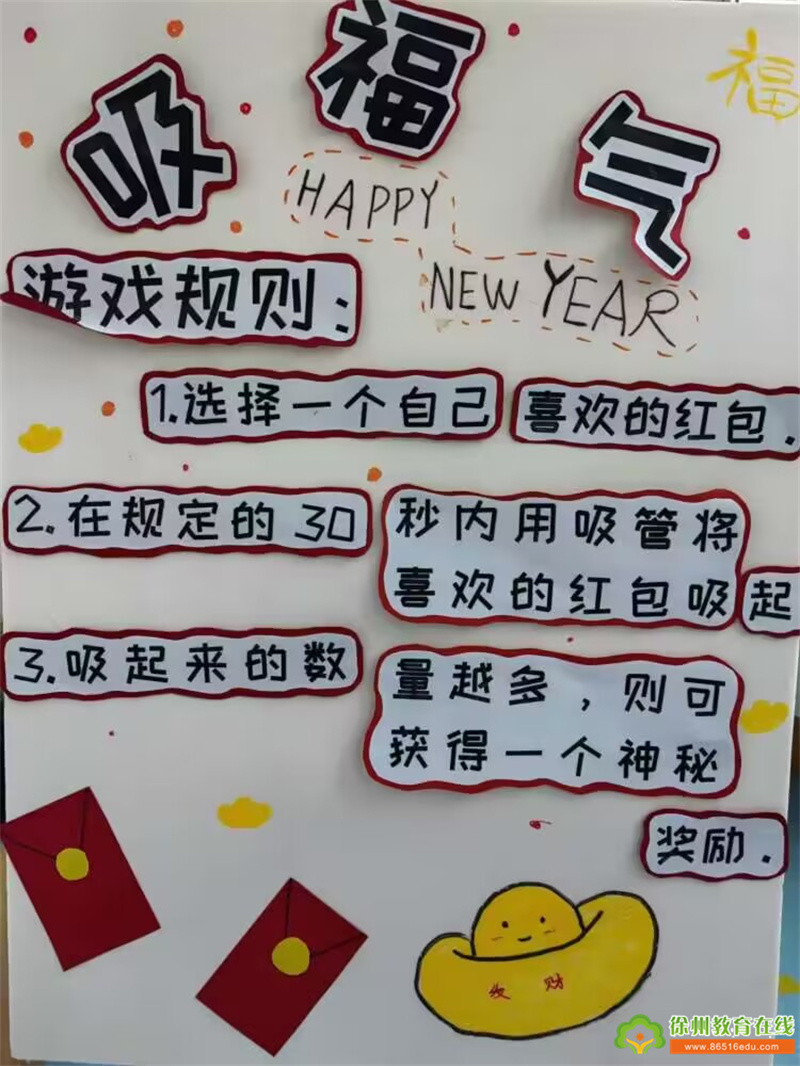 吸福气
福
HAPPY
NEW YEAR
游戏规则:
1.选择一个自己喜欢的红包.
2.在规定的30秒内用吸管将
喜欢的红包吸起
3.吸起来的数量越多,则可
获得一个神秘
奖励.
发财
徐州教育在线
www.86516edu.com